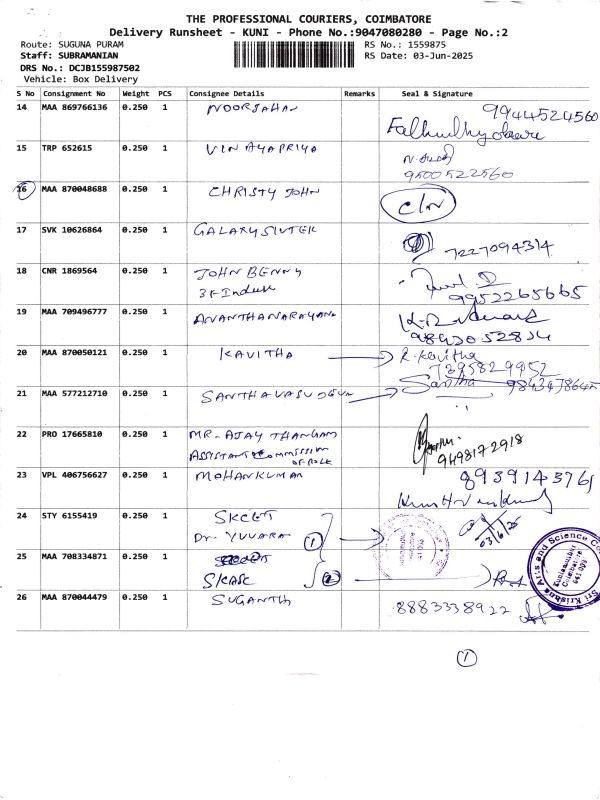 THE PROFESSIONAL COURIERS, COIMBATORE
Delivery Runsheet - KUNI - Phone No.:9047080280 - Page No.:2
Route: SUGUNA PURAM RS No.: 1559875
Staff: SUBRAMANIAN RS Date: 03-Jun-2025
DRS No.: DCJB155987502
Vehicle: Box Delivery
S No Consignment No Weight PCS Consignee Details Remarks Seal & Signature
14 MAA 869766136 0.250 1 NOORJAHAN 9944524560
15 TRP 652615 0.250 1 VINAYAPRIYA
9500522560
16 MAA 870048688 0.250 1 CHRISTY JOHN
17 SVK 10626864 0.250 1 GALAXY SISTER
7227094314
18 CNR 1869564 0.250 1 JOHN BENNY
9952265665
19 MAA 709496777 0.250 1 ANANTHANARAYANA
20 MAA 870050121 0.250 1 KAVITHA R. Kavitha
7395829952
21 MAA 577212710 0.250 1 SANTHAVASUDEVN Santha
22 PRO 17665810 0.250 1 MR. AJAY THANGAM
ASSISTANT COMMISSION
9498172918
23 VPL 406756627 0.250 1 MOHANKUMAR 8939143761
24 STY 6155419 0.250 1 SKCET
Dr. YUVARA 1 03/6/25
25 MAA 708334871 0.250 1
SKASC 2
Sri Krishna Arts and Science Co
Kuniamuthur
Coimbatore
641 008
26 MAA 870044479 0.250 1 SUGANTH 8883338922
1